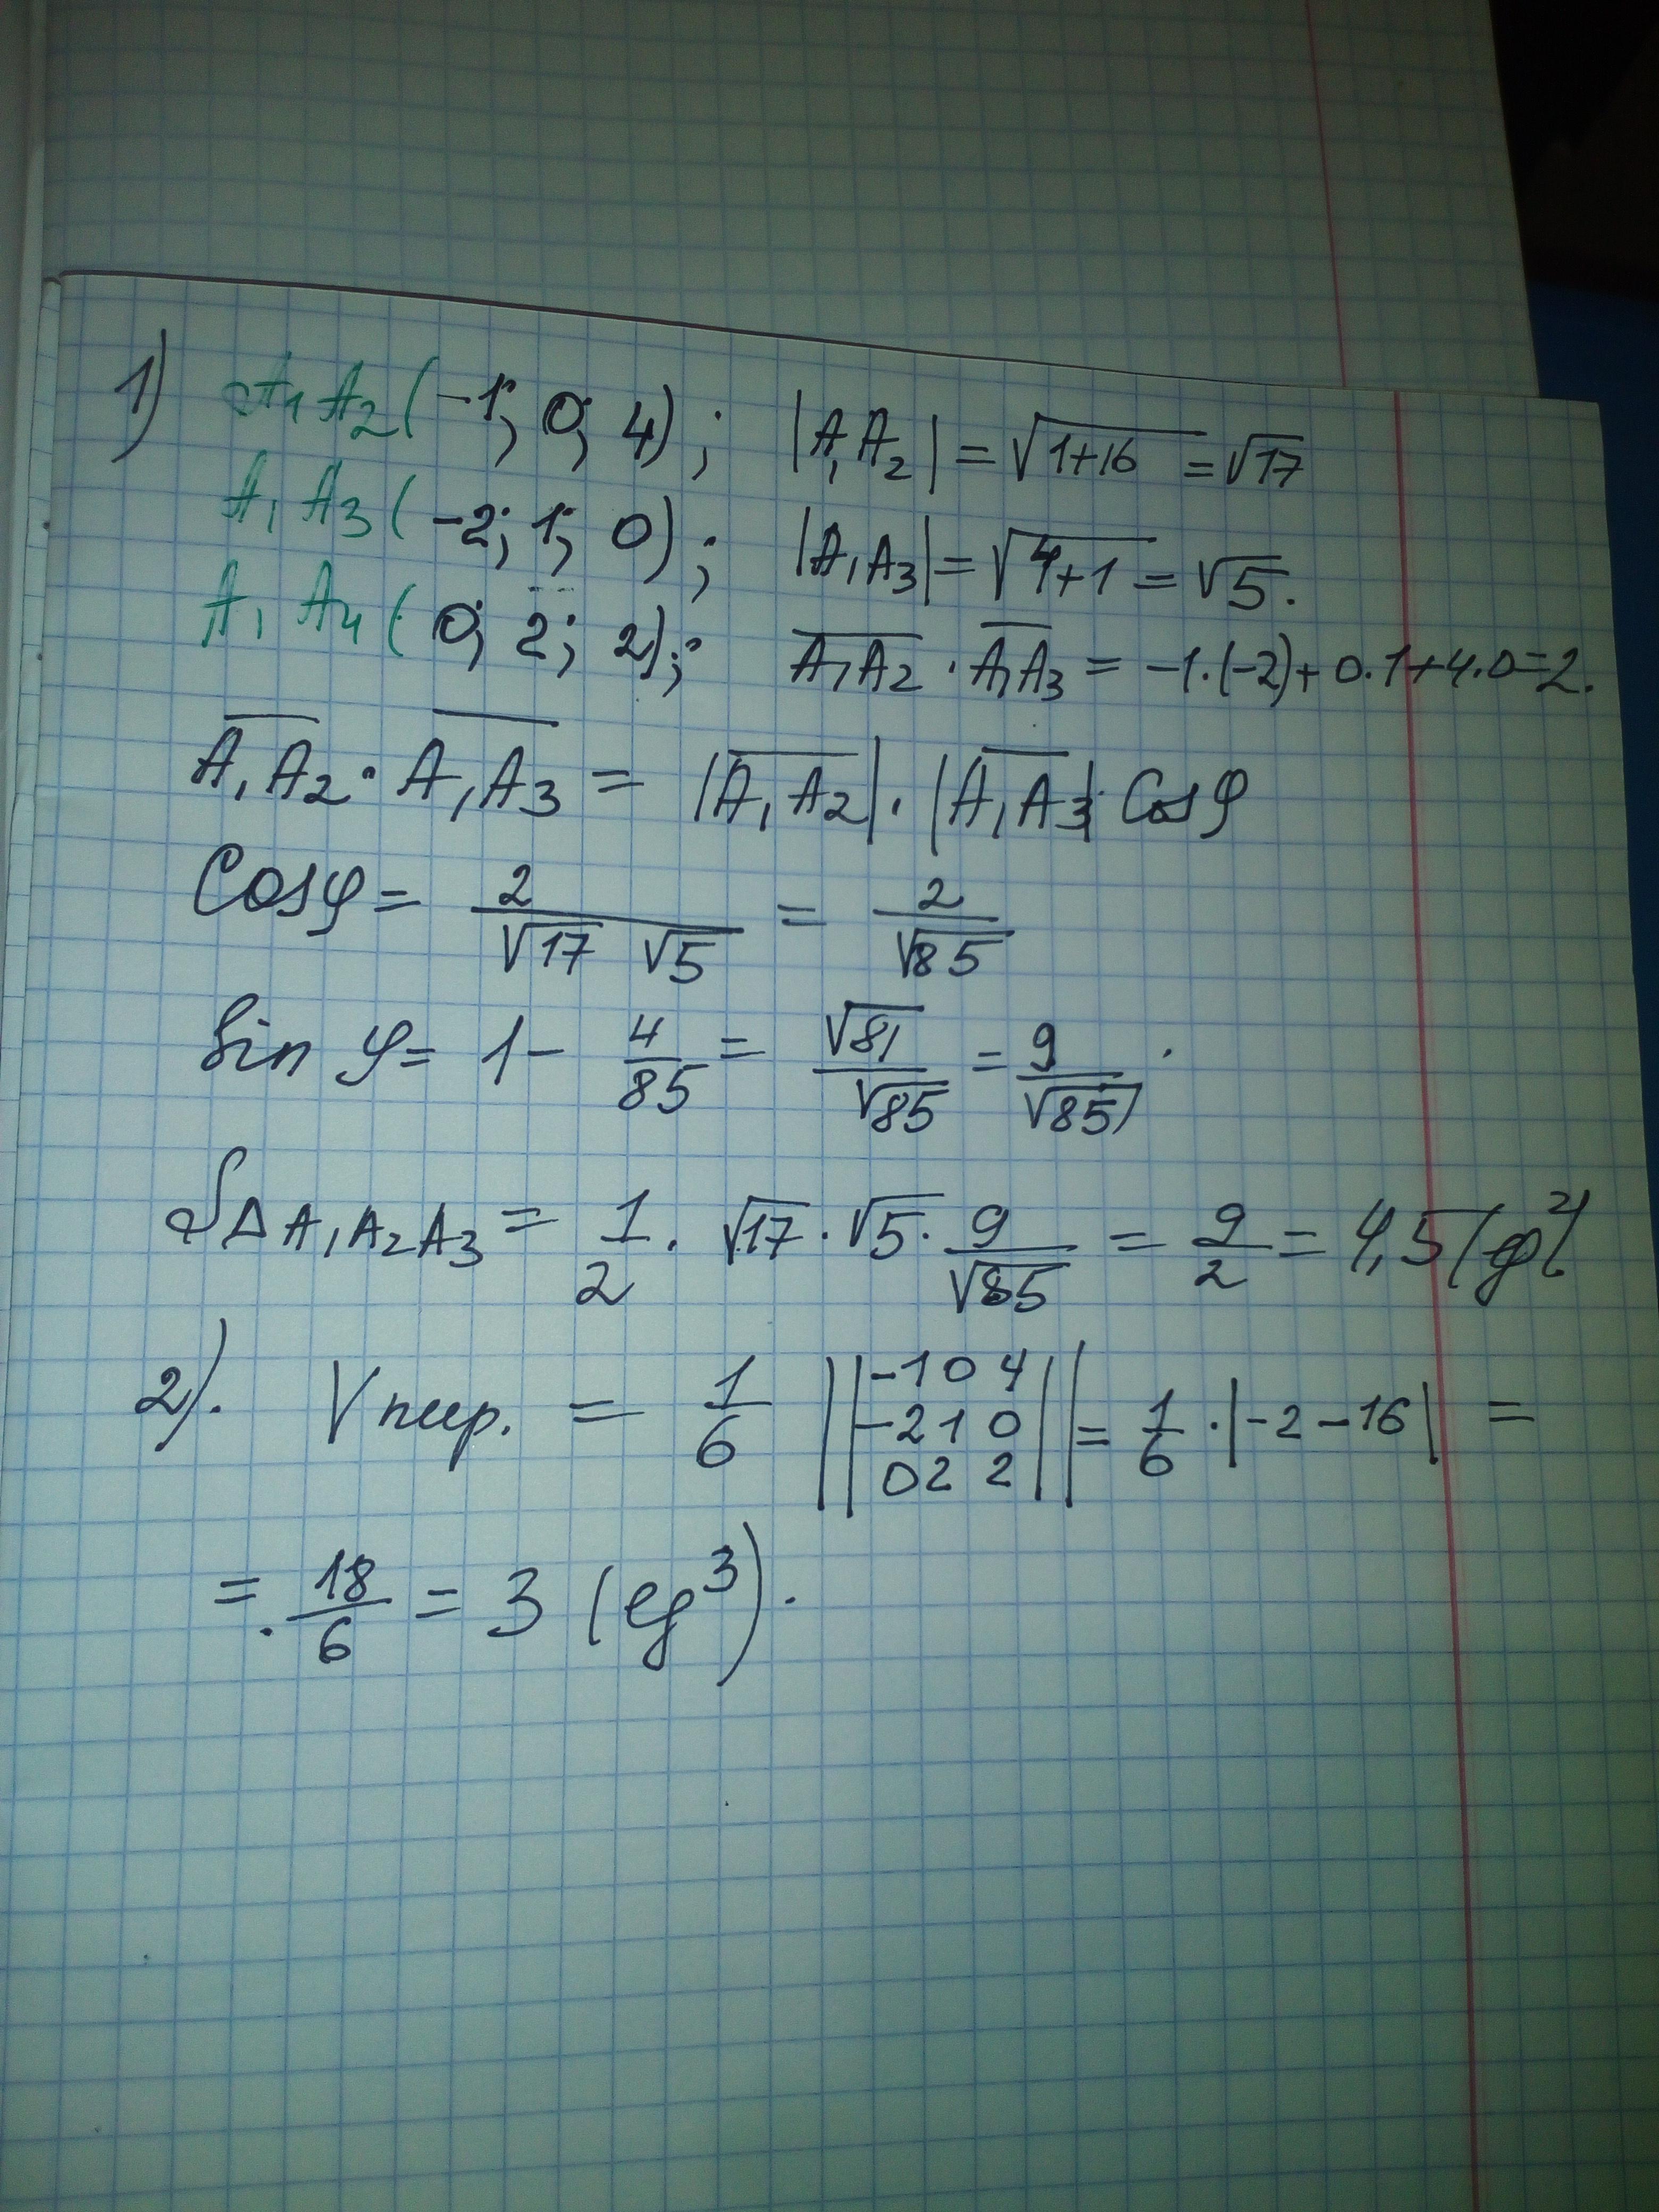 1) A₁A₂(-1; 0; 4); |A₁A₂| = √1+16 = √17
A₁A₃(-2; 1; 0); |A₁A₃| = √4+1 = √5.
A₁A₄(0; 2; 2); A₁A₂ · A₁A₃ = -1·(-2)+0·1+4·0=2.
A₁A₂ · A₁A₃ = |A₁A₂| · |A₁A₃| Cosφ
Cosφ = 2/(√17 √5) = 2/√85
Sin φ = 1 - 4/85 = √81/√85 = 9/√85.
SΔA₁A₂A₃ = 1/2 · √17 · √5 · 9/√85 = 9/2 = 4,5 (ед²)
2). Vпир. = 1/6 ||-1 0 4
-2 1 0
0 2 2|| = 1/6 · |-2-16| =
= 18/6 = 3 (ед³).